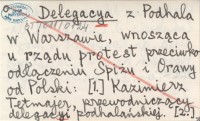 Delegacya z Podhala
w Warszawie, wnosząca
u rządu protest przeciwko
odłączeniu Spiżu i Orawy
od Polski: [1.] Kazimierz
Tetmajer, przewodniczący
delegacyi podhalańskiej. [2.]